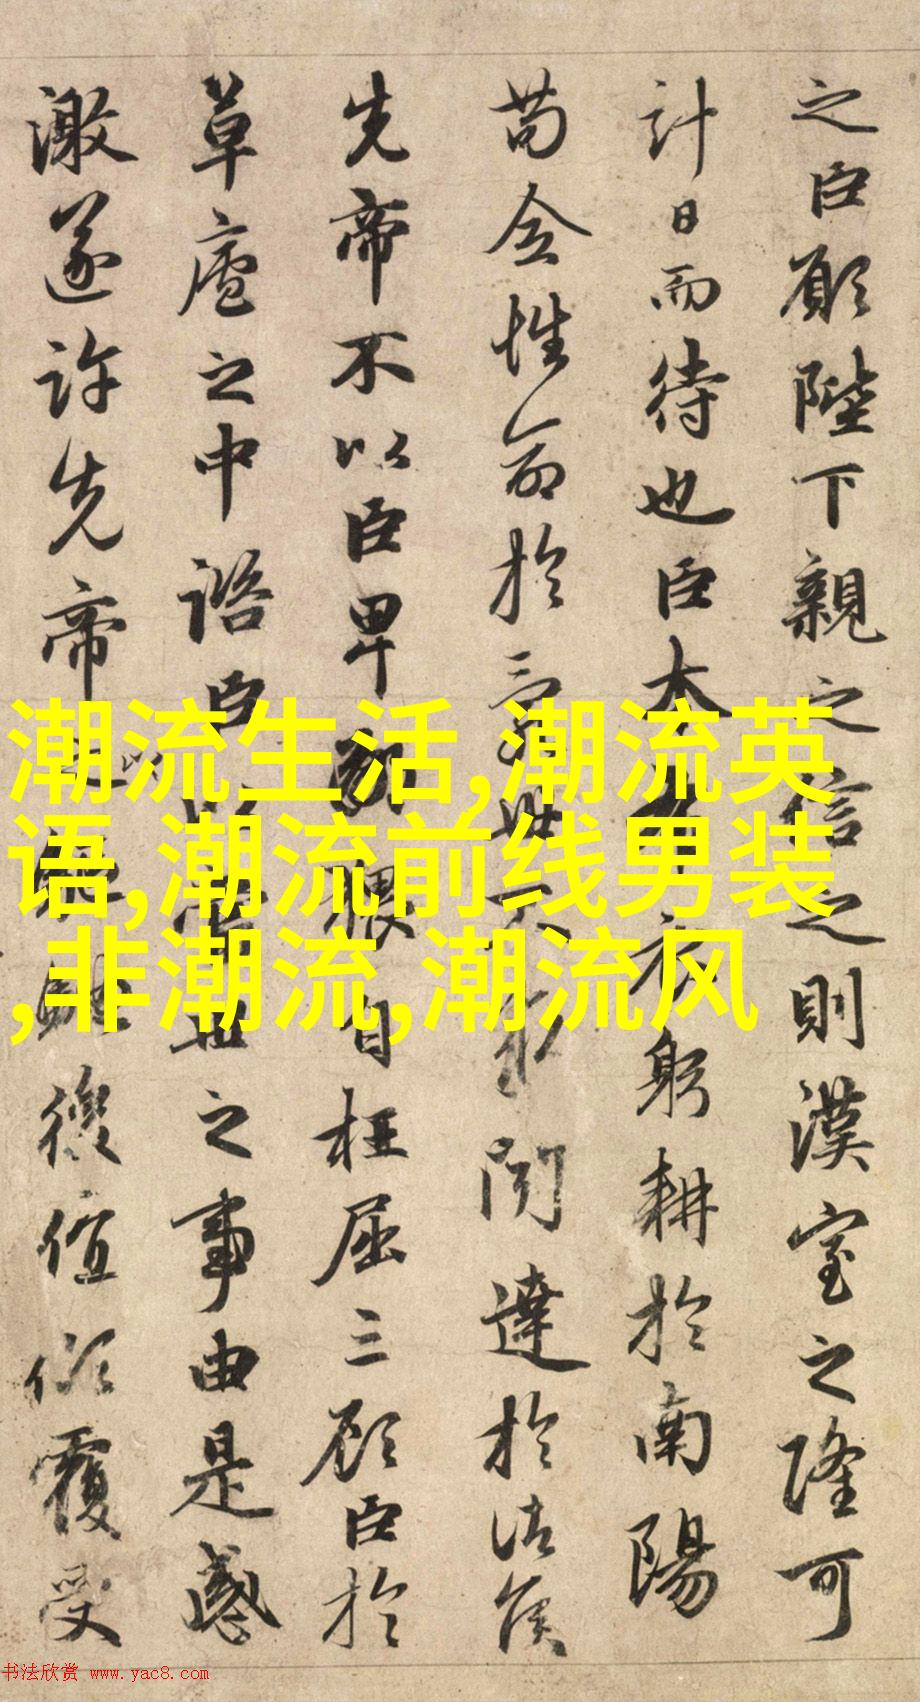 之臣願陛下親之信之則漢室之隆可
計日而待也臣本布衣躬耕於南陽
苟全性命於亂世不求聞達於諸侯
先帝不以臣卑鄙猥自枉屈三顧臣於
草廬之中諮臣以當世之事由是感
激遂許先帝以驅馳後值傾覆受
潮流生活,潮流英
语,潮流前线男装
,非潮流,潮流风
书法欣赏 www.yac8.com